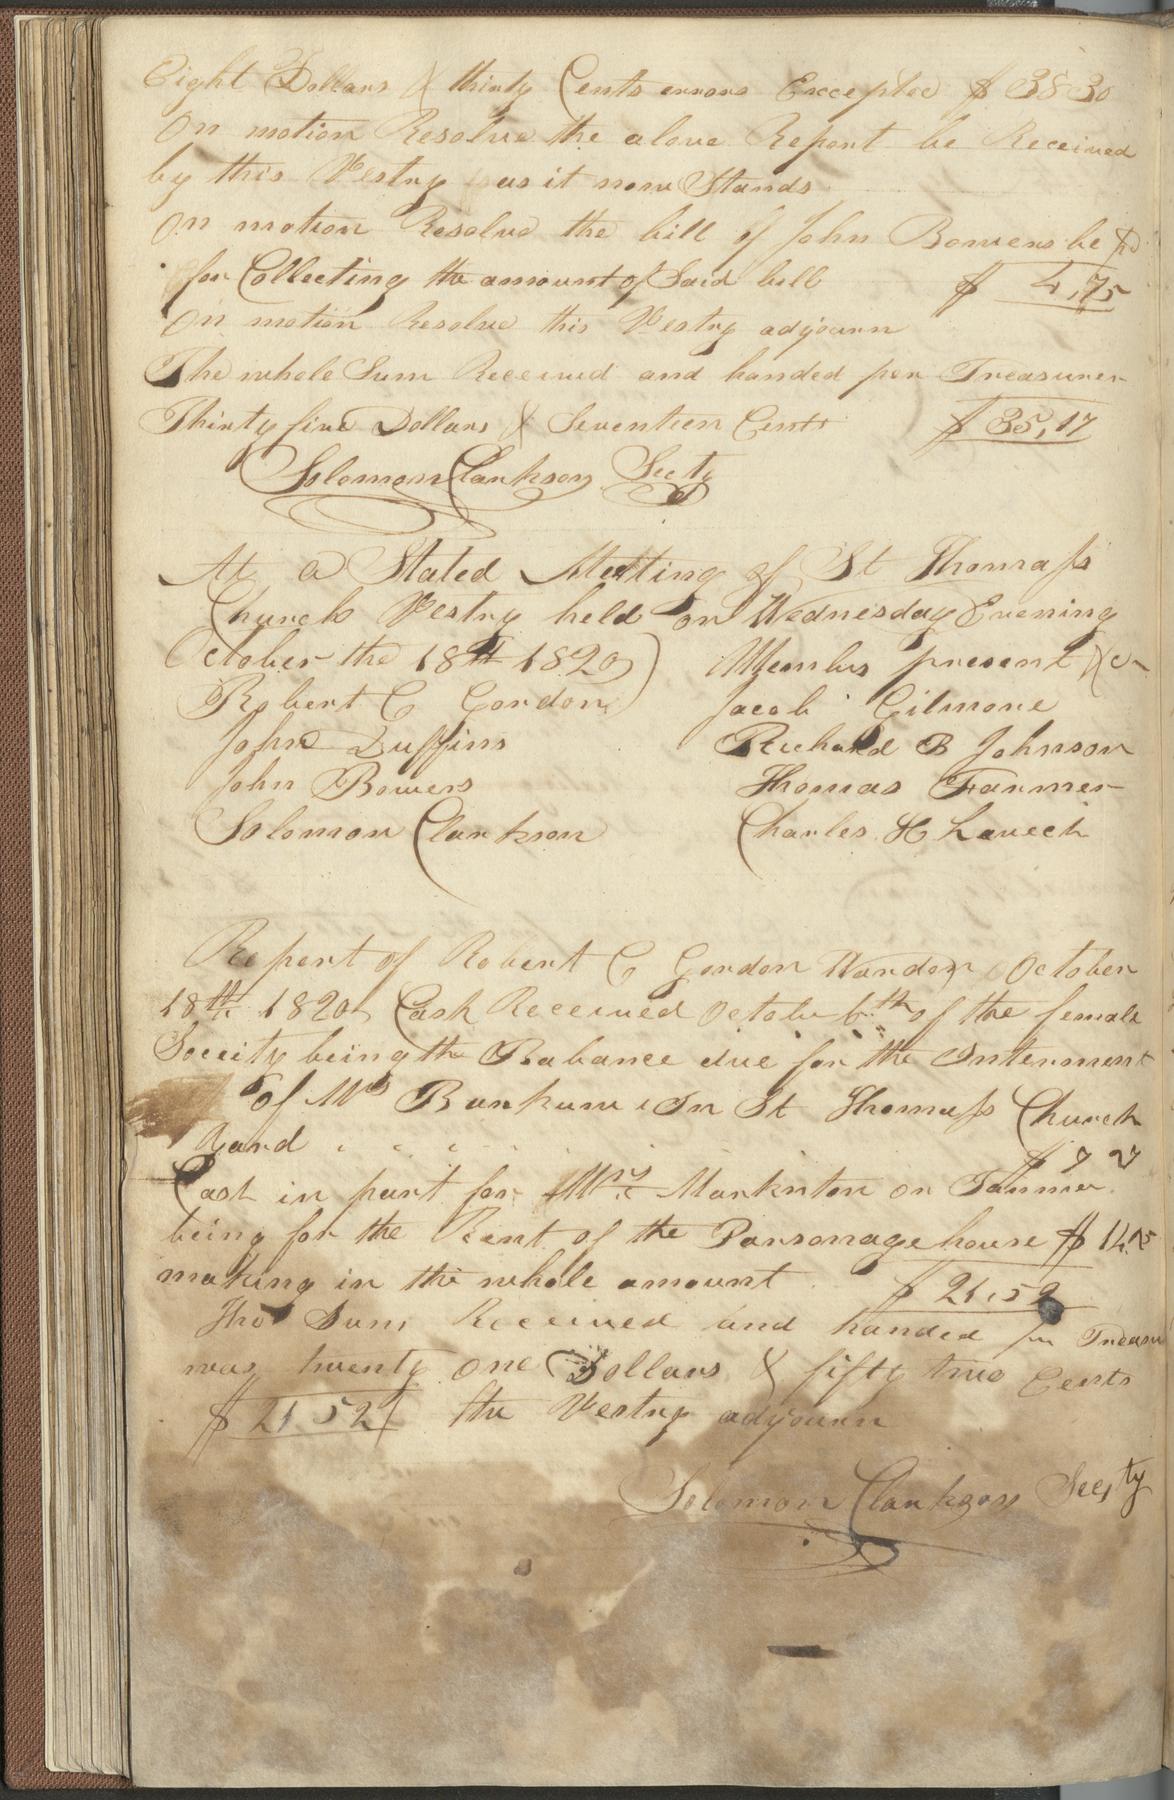 Eight Dollars & thirty Cents errors Excepted $ 38 30
On motion Resolve the above Report be Received
by this Vestry as it now Stands
On motion Resolve the bill of John Bowers be pd
for Collecting the amount of Said bill $ 4,75
On motion Resolve this Vestry adjourn
The whole Sum Received and handed per Treasurer
Thirty five Dollars & Seventeen Cents $ 35,17
Solomon Clarkson Secty
At a Stated Meeting of St Thomass
Church Vestry held on Wednesday Evening
October the 18th 1820) Members present &c
Robert C Gordon Jacob Gilmore
John Duffins Richard B Johnson
John Bowers Thomas Farmer
Solomon Clarkson Charles H Laveck
Report of Robert C Gordon Warden October
18th 1820 Cash Received October 6th of the female
Society being the Balance due for the Interment
of Mrs Bunkum in St Thomass Church
Yard $ 7 27
Cash in part for Markinton or Tanner
being for the Rent of the Parsonage house $ 14.25
making in the whole amount $ 21,52
The Sum Received and handed per Treasu
was twenty one Dollars & fifty two Cents
$ 21 52 the Vestry adjourn
Solomon Clarkson Secty